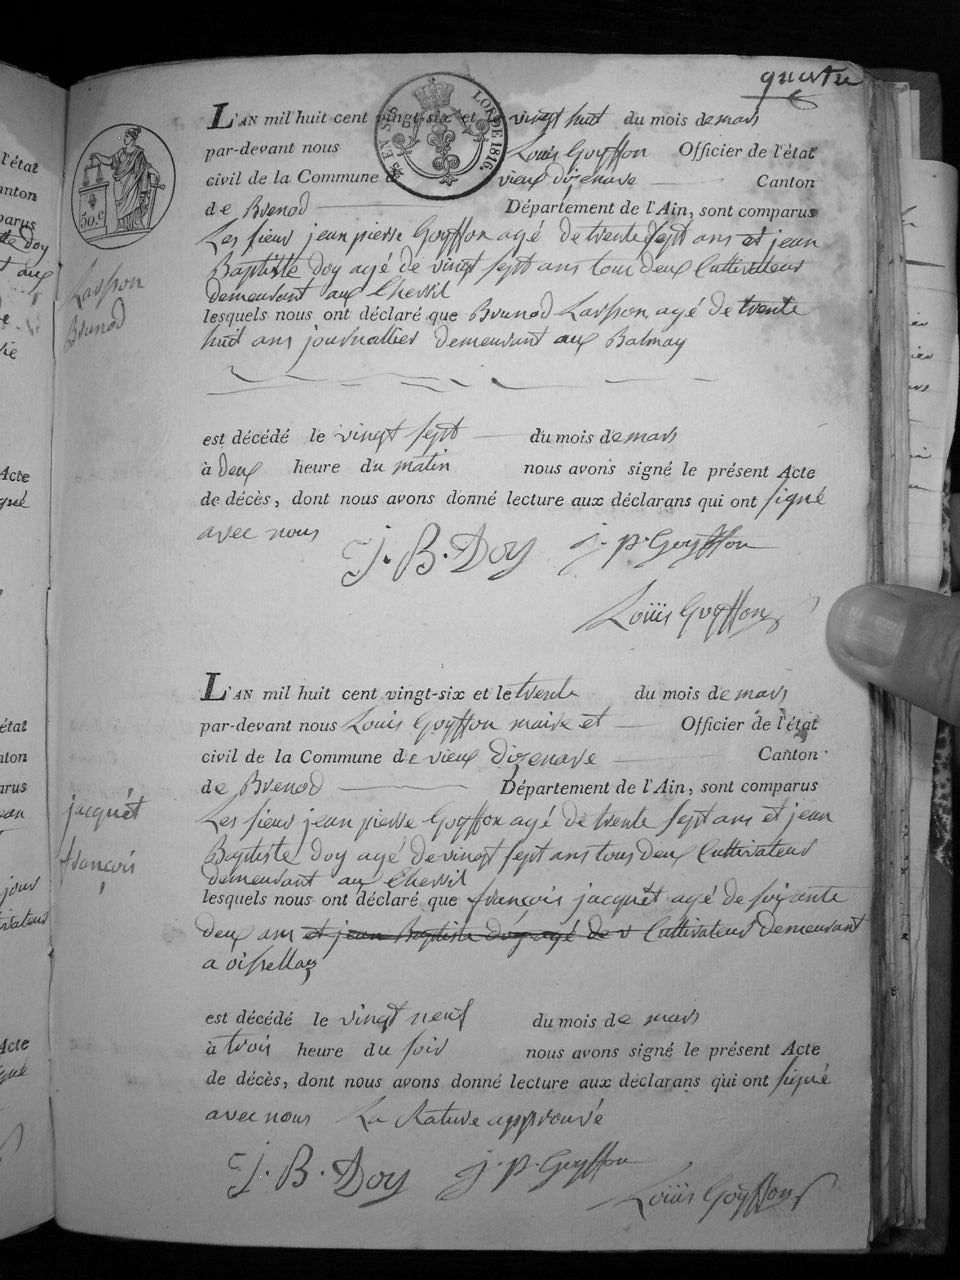 quatre
L'AN mil huit cent vingt-six et le vingt huit du mois de mars
par-devant nous Louis Goyffon Officier de l'état
civil de la Commune de vieux dizenave Canton
de Brenod Département de l'Ain, sont comparus
Les sieur jean pierre Goyffon agé de trente sept ans et jean
Baptiste Doy agé de vingt sept ans tout deux Cultivateurs
demeurant aux Chevril
lesquels nous ont déclaré que Brunod Lavsson agé de trente
huit ans journallier demeurant aux Balmay
est décédé le vingt sept du mois de mars
à deux heure du matin nous avons signé le présent Acte
de décès, dont nous avons donné lecture aux déclarans qui ont signé
avec nous
J. B. Doy j. p. Goyffon
Louis Goyffon
Lavsson
Brunod
50.c
LOI DE 1816.
L'AN mil huit cent vingt-six et le trente du mois de mars
par-devant nous Louis Goyffon maire et Officier de l'état
civil de la Commune de vieux dizenave Canton
de Brenod Département de l'Ain, sont comparus
Les sieur jean pierre Goyffon agé de trente sept ans et jean
Baptiste Doy agé de vingt sept ans tous deux Cultivateurs
demeurant aux Chevril
lesquels nous ont déclaré que françois jacquét agé de soixante
deux ans et jean Baptiste doy agé de v Cultivateur demeurant
a oissellaz
est décédé le vingt neuf du mois de mars
à trois heure du soir nous avons signé le présent Acte
de décès, dont nous avons donné lecture aux déclarans qui ont signé
avec nous La Rature approuvé
J. B. Doy j. p. Goyffon
Louis Goyffon
jacquét
françois